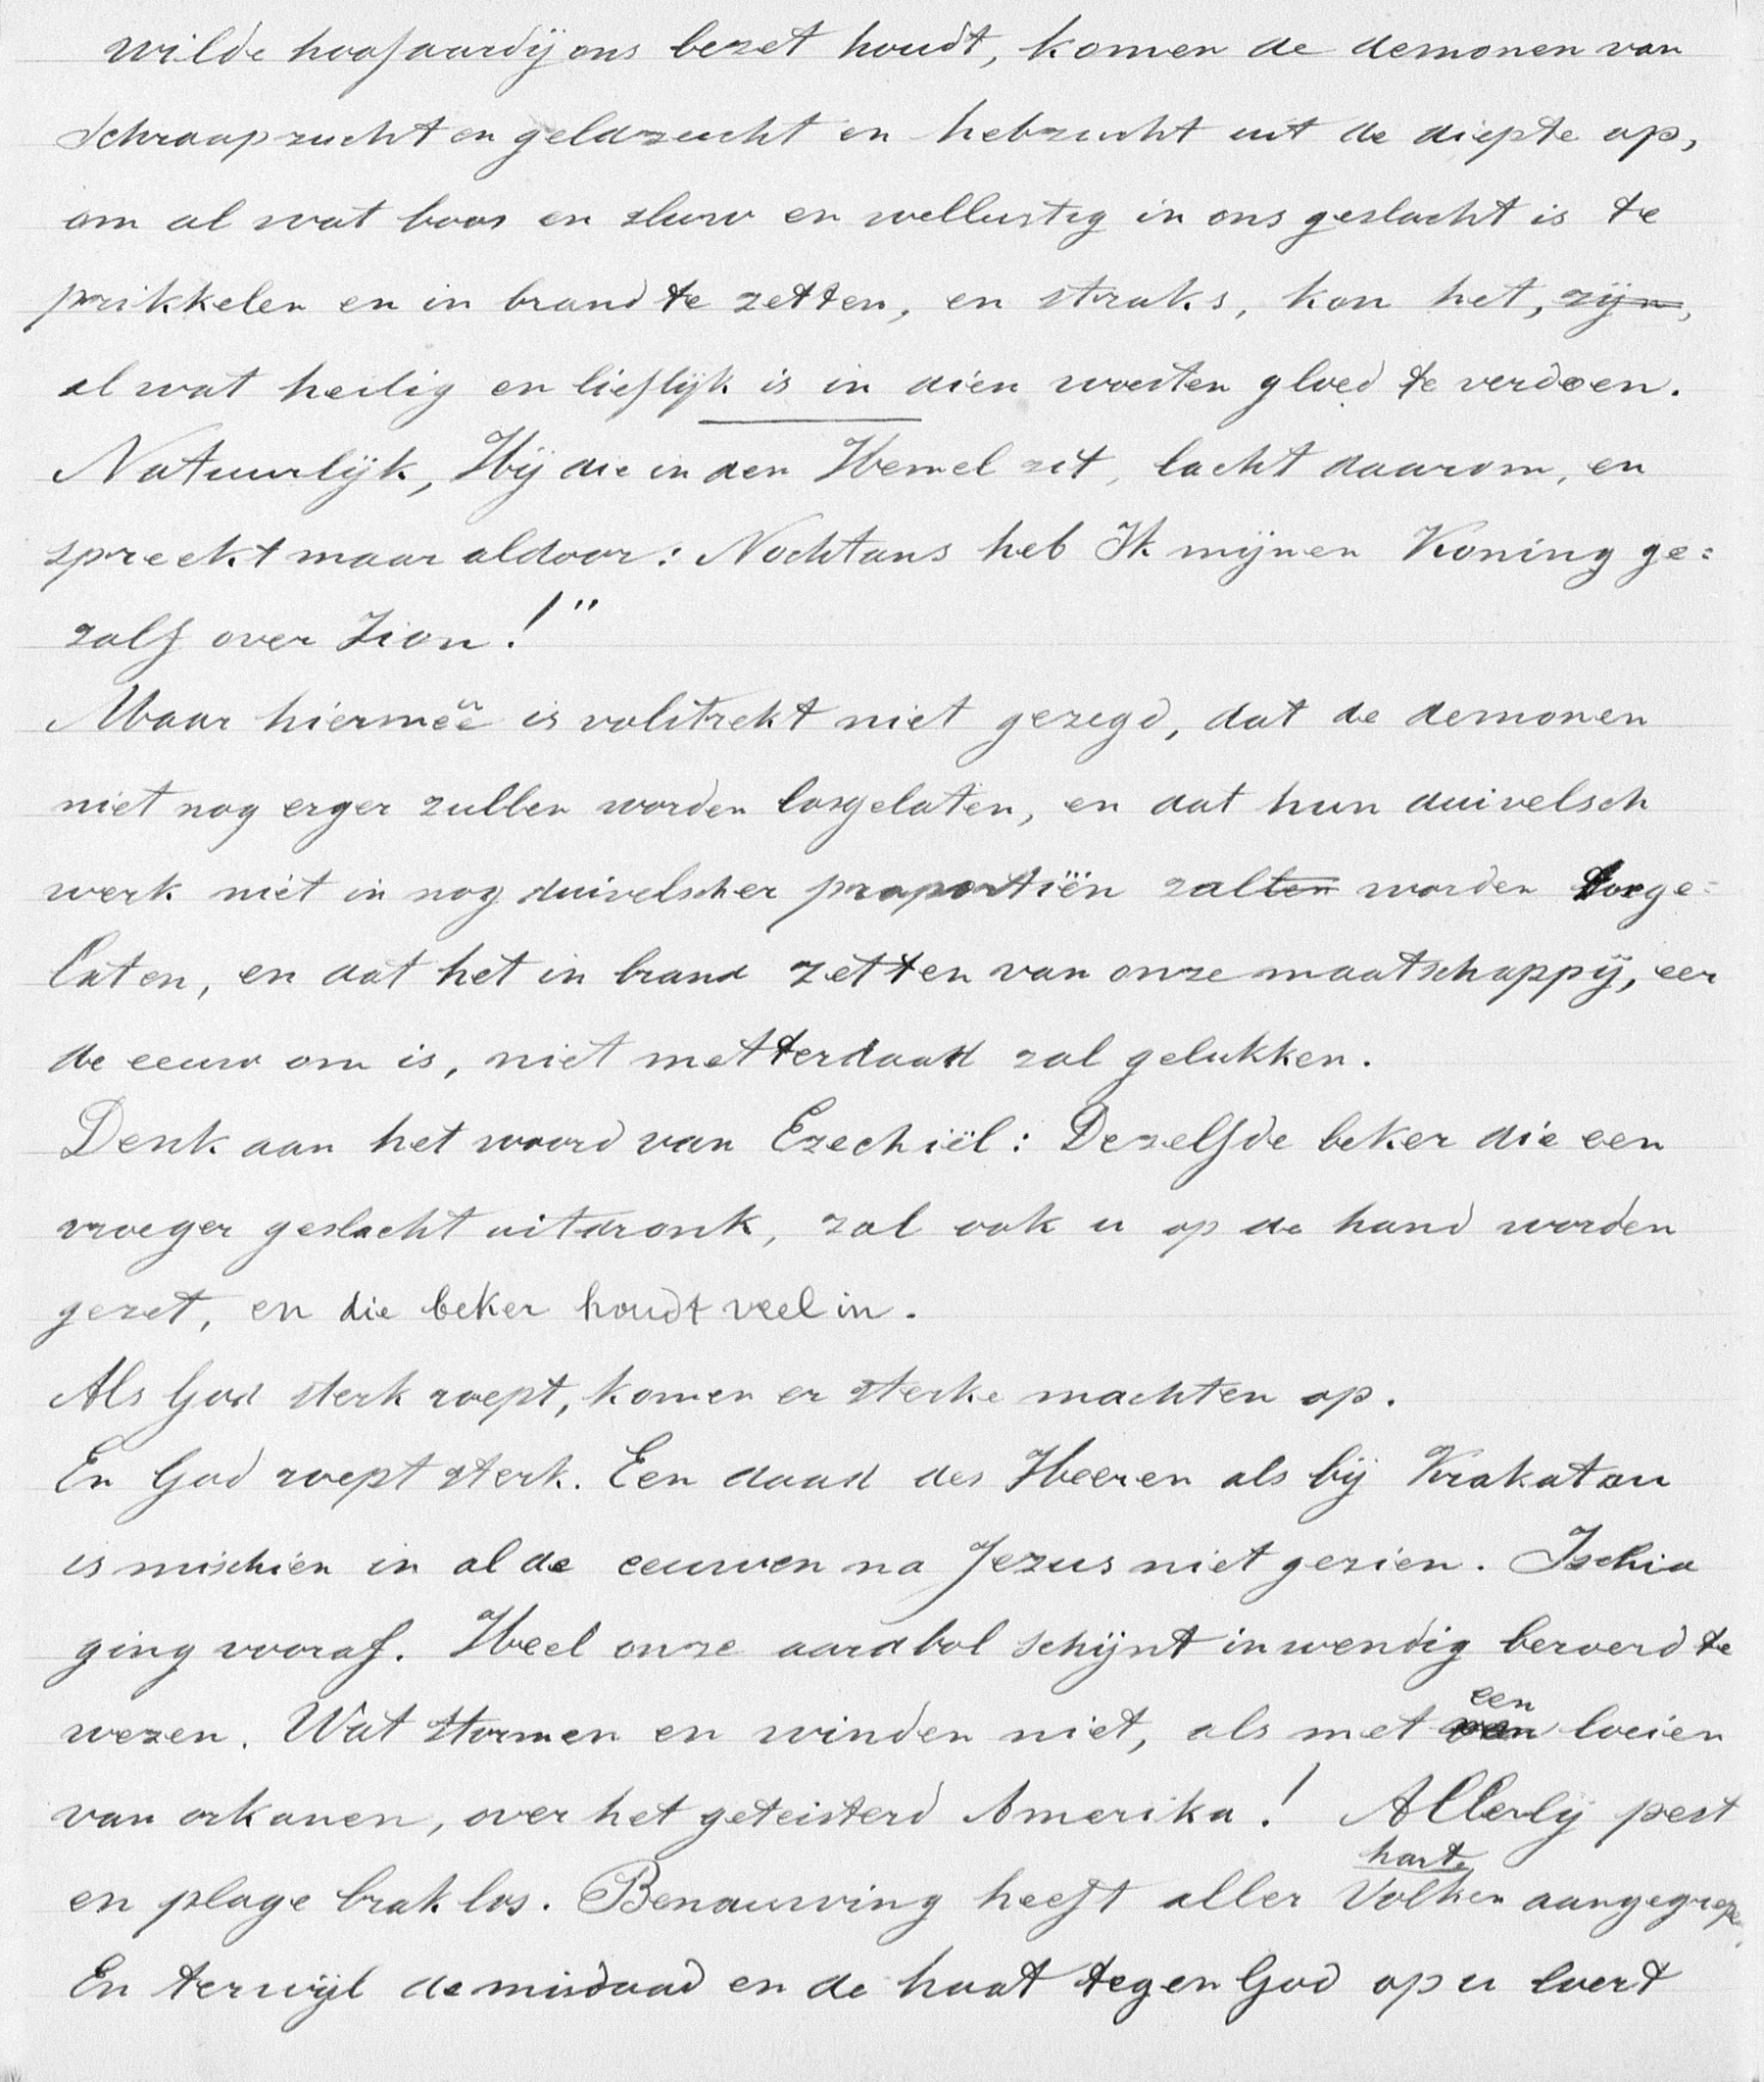 wilde hoofaardij ons bezet houdt, komen de demonen van
schraapzucht en geldzucht en hebzucht uit de diepte op,
om al wat boos en sluw en wellustig in ons geslacht is te
prikkelen en in brand te zetten, en straks, kon het, zijn,
al wat heilig en lieflijk is in dien woesten gloed te verdoen.
Natuurlijk, Hij die in den Hemel zit, lacht daarom, en
spreekt maar aldoor: Nochtans heb Ik mijnen Koning ge=
zalf over Zion!"
Maar hiermeê is volstrekt niet gezegd, dat de demonen
niet nog erger zullen worden losgelaten, en dat hun duivelsch
werk niet in nog duivelscher proportiën zalten worden losge=
laten, en dat het in brand zetten van onze maatschappij, eer
de eeuw om is, niet metterdaad zal gelukken.
Denk aan het woord van Ezechiël: Dezelfde beker die een
vroeger geslacht uitdronk, zal ook u op de hand worden
gezet, en die beker houdt veel in.
Als God sterk roept, komen er sterke machten op.
En God roept sterk. Een daad des Heeren als bij Krakatau
is mischien in al de eeuwen na Jezus niet gezien. Ischia
ging vooraf. Heel onze aardbol schijnt inwendig beroerd te
wezen. Wat stormen en winden niet, als met een loeien
van orkanen, over het geteisterd Amerika! Allerlij pest
en plage brak los. Benauwing heeft aller Volken harte aangegrepe
En terwijl de misdaad en de haat tegen God op u loert